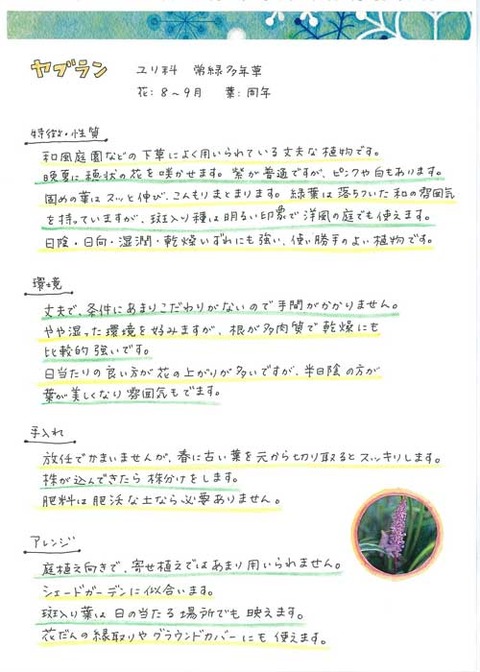 ヤブラン
ユリ科 常緑多年草
花: 8～9月 葉: 周年
特徴・性質
和風庭園などの下草によく用いられている丈夫な植物です。
晩夏に穂状の花を咲かせます。紫が普通ですが、ピンクや白もあります。
固めの葉はスッと伸び、こんもりまとまります。緑葉は落ちついた和の雰囲気
を持っていますが、斑入り種は明るい印象で洋風の庭でも使えます。
日陰・日向・湿潤・乾燥いずれにも強い、使い勝手のよい植物です。
環境
丈夫で、条件にあまりこだわりがないので手間がかかりません。
やや湿った環境を好みますが、根が多肉質で乾燥にも
比較的強いです。
日当たりの良い方が花の上がりが多いですが、半日陰の方が
葉が美しくなり雰囲気もでます。
手入れ
放任でかまいませんが、春に古い葉を元から切り取るとスッキリします。
株が込んできたら株分けをします。
肥料は肥沃な土なら必要ありません。
アレンジ
庭植え向きで、寄せ植えではあまり用いられません。
シェードガーデンに似合います。
斑入り葉は日の当たる場所でも映えます。
花だんの縁取りやグラウンドカバーにも使えます。